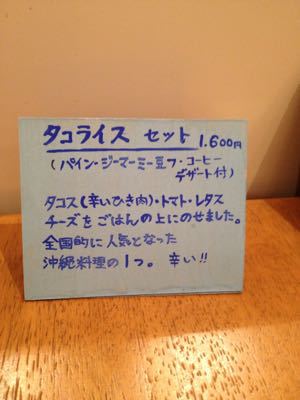 タコライス セット 1.600円
(パイン・ジーマーミー豆フ・コーヒー
デザート付)
タコス(辛いひき肉)・トマト・レタス
チーズをごはんの上にのせました。
全国的に人気となった
沖縄料理の1つ。辛い!!